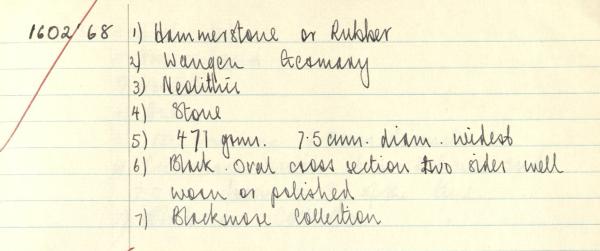 1602'68 1) Hammerstone or Rubber
2) Wangen Germany
3) Neolithic
4) Stone
5) 471 grms. 7.5 cmm. diam. widest
6) Black. Oval cross section two sides well
worn or polished
7) Blackmore Collection